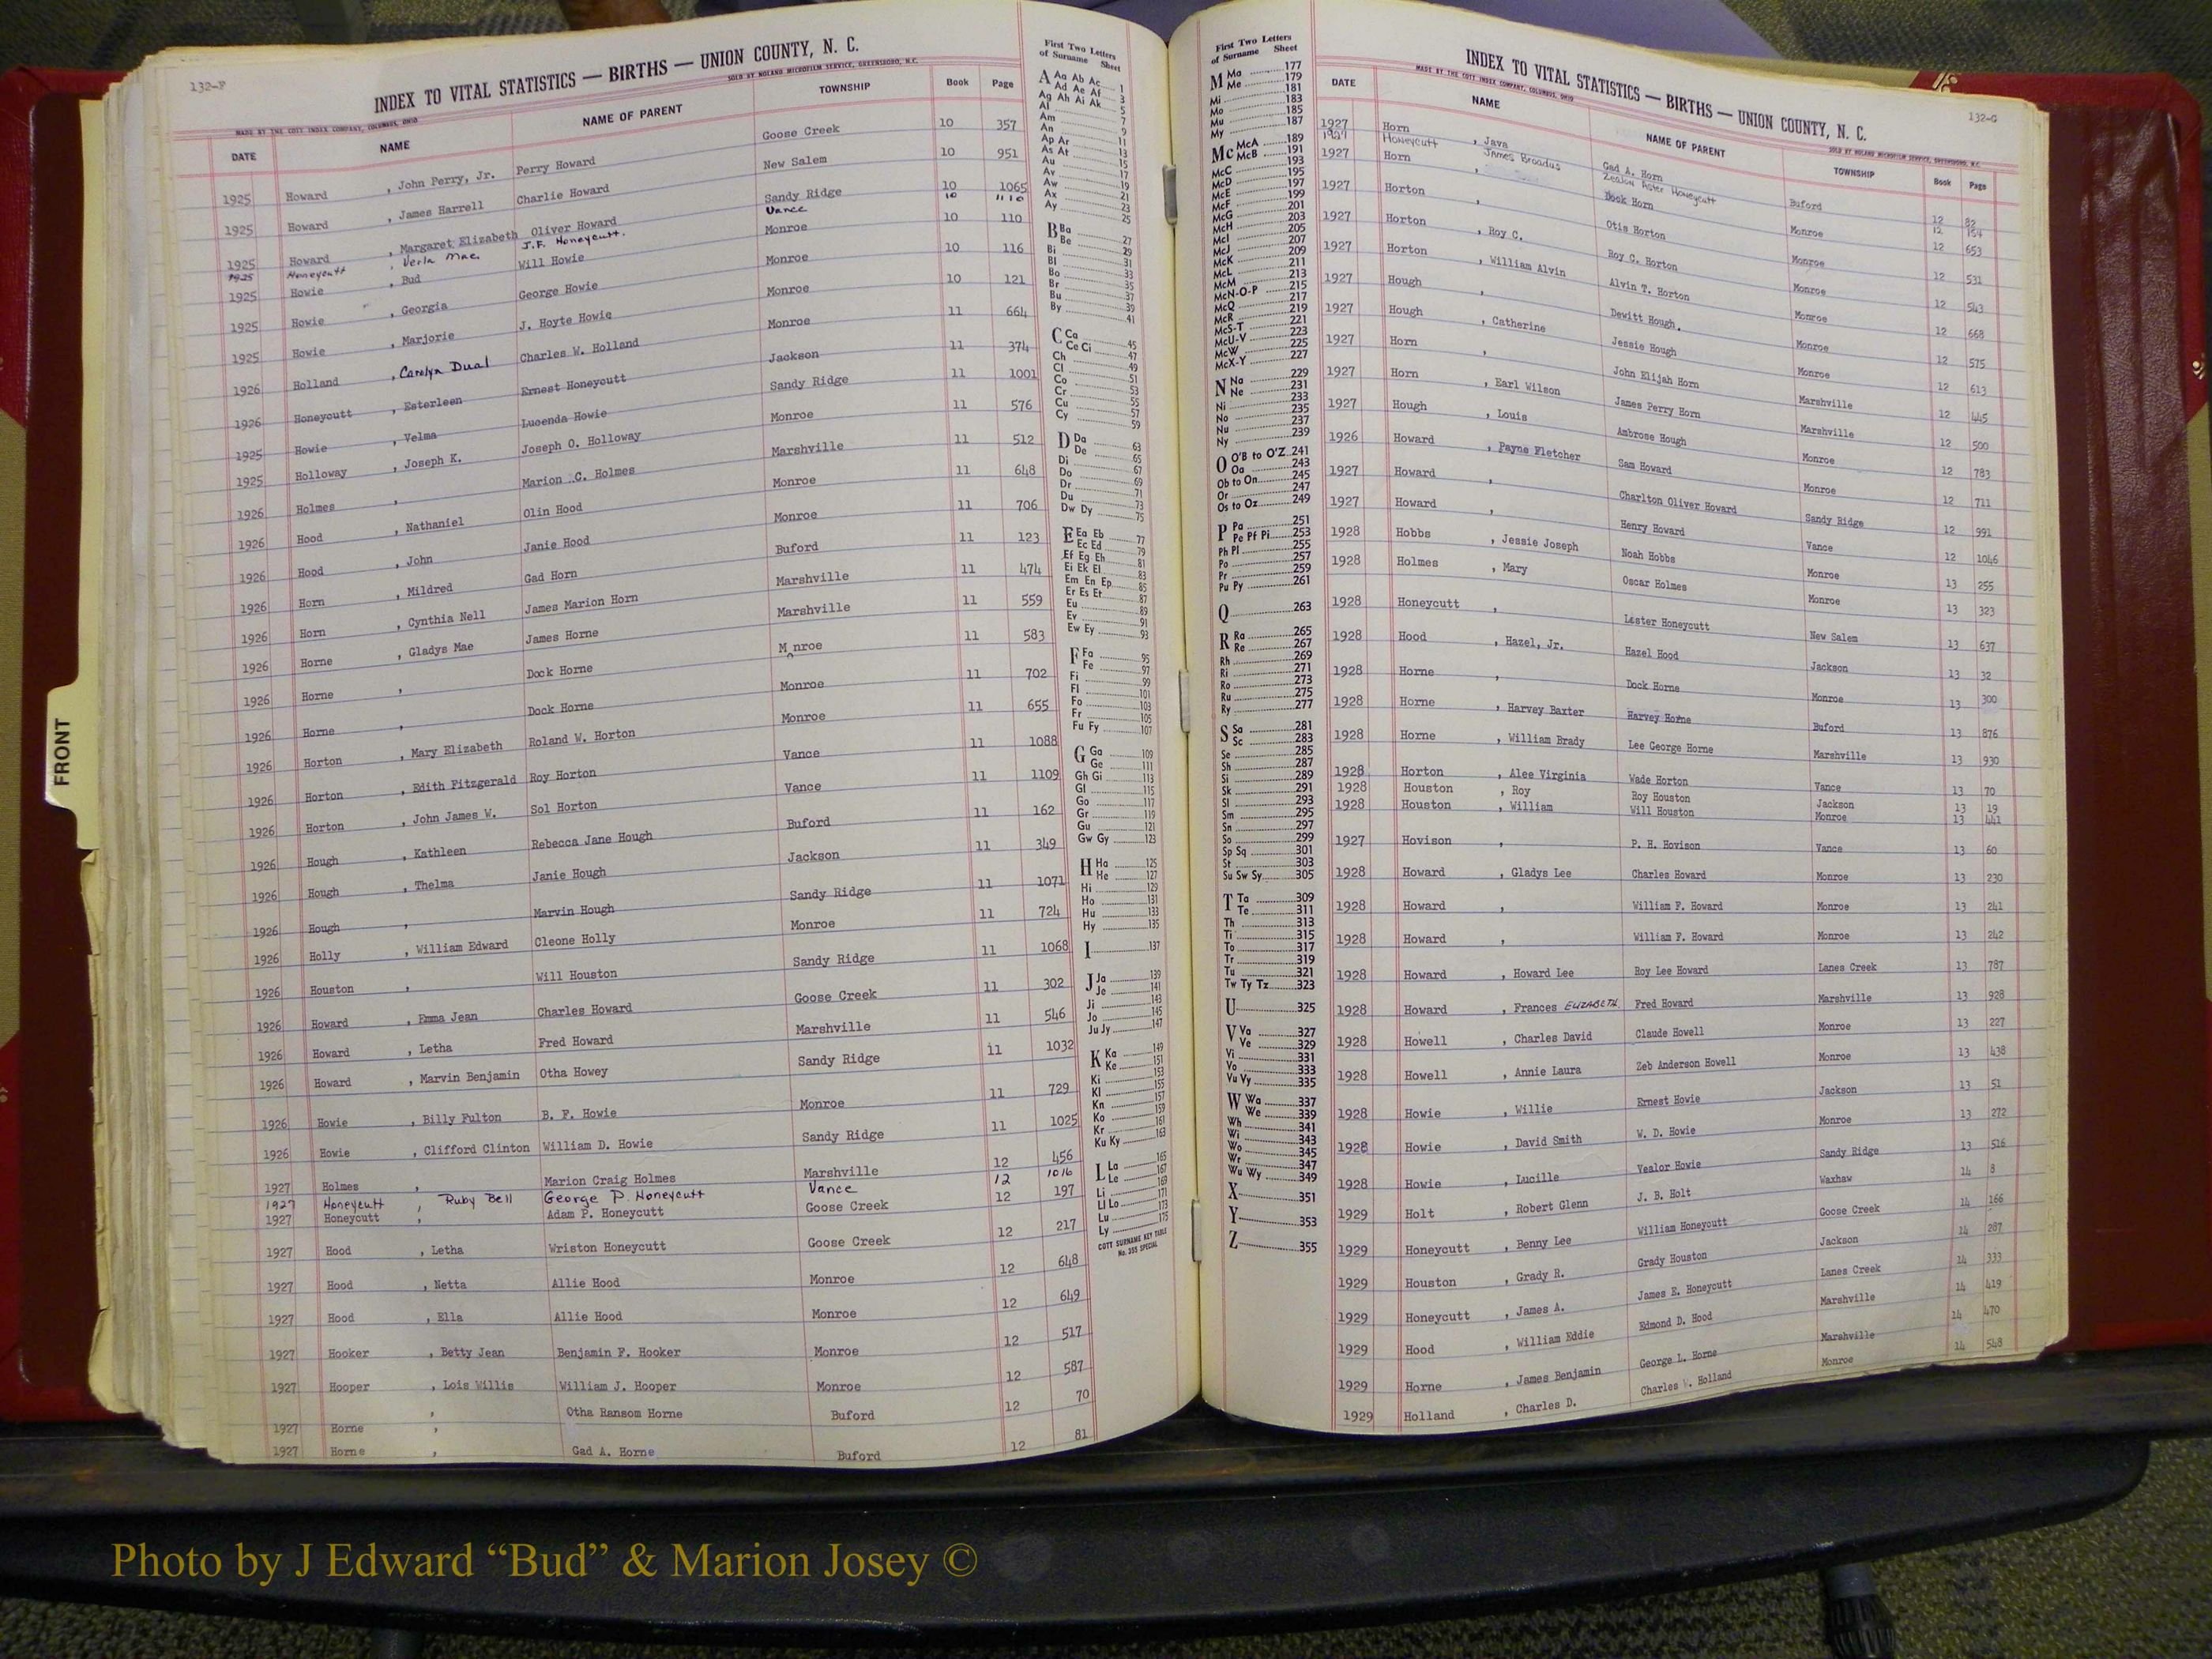 132-F
INDEX TO VITAL STATISTICS — BIRTHS — UNION COUNTY, N. C.
MADE BY THE COTT INDEX COMPANY, COLUMBUS, OHIO SOLD BY NOLAND MICROFILM SERVICE, GREENSBORO, N.C.
DATE NAME NAME OF PARENT TOWNSHIP Book Page
1925 Howard , John Perry, Jr. Perry Howard Goose Creek 10 357
1925 Howard , James Harrell Charlie Howard New Salem 10 951
1925 Howard , Margaret Elizabeth Oliver Howard Sandy Ridge 10 1065
1925 Honeycutt , Verla Mae J.F. Honeycutt. Vance 10 1110
1925 Howie , Bud Will Howie Monroe 10 110
1925 Howie , Georgia George Howie Monroe 10 116
1925 Howie , Marjorie J. Hoyte Howie Monroe 10 121
1926 Holland , Carolyn Dual Charles W. Holland Monroe 11 664
1926 Honeycutt , Esterleen Ernest Honeycutt Jackson 11 374
1925 Howie , Velma Lucenda Howie Sandy Ridge 11 1001
1925 Holloway , Joseph K. Joseph O. Holloway Monroe 11 576
1926 Holmes , Marion C. Holmes Marshville 11 512
1926 Hood , Nathaniel Olin Hood Monroe 11 648
1926 Hood , John Janie Hood Monroe 11 706
1926 Horn , Mildred Gad Horn Buford 11 123
1926 Horn , Cynthia Nell James Marion Horn Marshville 11 474
1926 Horne , Gladys Mae James Horne Marshville 11 559
1926 Horne , Dock Horne M^nroe 11 583
1926 Horne , Dock Horne Monroe 11 702
1926 Horton , Mary Elizabeth Roland W. Horton Monroe 11 655
1926 Horton , Edith Fitzgerald Roy Horton Vance 11 1088
1926 Horton , John James W. Sol Horton Vance 11 1109
1926 Hough , Kathleen Rebecca Jane Hough Buford 11 162
1926 Hough , Thelma Janie Hough Jackson 11 349
1926 Hough , Marvin Hough Sandy Ridge 11 1071
1926 Holly , William Edward Cleone Holly Monroe 11 724
1926 Houston , Will Houston Sandy Ridge 11 1068
1926 Howard , Emma Jean Charles Howard Goose Creek 11 302
1926 Howard , Letha Fred Howard Marshville 11 546
1926 Howard , Marvin Benjamin Otha Howey Sandy Ridge 11 1032
1926 Howie , Billy Fulton B. F. Howie Monroe 11 729
1926 Howie , Clifford Clinton William D. Howie Sandy Ridge 11 1025
1927 Holmes , Marion Craig Holmes Marshville 12 456
1927 Honeycutt , Ruby Bell George P. Honeycutt Vance 12 1016
1927 Honeycutt , Adam P. Honeycutt Goose Creek 12 197
1927 Hood , Letha Wriston Honeycutt Goose Creek 12 217
1927 Hood , Netta Allie Hood Monroe 12 648
1927 Hood , Ella Allie Hood Monroe 12 649
1927 Hooker , Betty Jean Benjamin F. Hooker Monroe 12 517
1927 Hooper , Lois Willis William J. Hooper Monroe 12 587
1927 Horne , Otha Ransom Horne Buford 12 70
1927 Horne , Gad A. Horne Buford 12 81
First Two Letters
of Surname Sheet
A Aa Ab Ac 1
Ad Ae Af 3
Ag Ah Ai Ak 5
Al 7
Am 9
An 11
Ap Ar 13
As At 15
Au 17
Av 19
Aw 21
Ax 23
Ay 25
B Ba 27
Be 29
Bi 31
Bl 33
Bo 35
Br 37
Bu 39
By 41
C Ca 45
Ce Ci 47
Ch 49
Cl 51
Co 53
Cr 55
Cu 57
Cy 59
D Da 63
De 65
Di 67
Do 69
Dr 71
Du 73
Dw Dy 75
E Ea Eb 77
Ec Ed 79
Ef Eg Eh 81
Ei Ek El 83
Em En Ep 85
Er Es Et 87
Eu 89
Ev 91
Ew Ey 93
F Fa 95
Fe 97
Fi 99
Fl 101
Fo 103
Fr 105
Fu Fy 107
G Ga 109
Ge 111
Gh Gi 113
Gl 115
Go 117
Gr 119
Gu 121
Gw Gy 123
H Ha 125
He 127
Hi 129
Ho 131
Hu 133
Hy 135
I 137
J Ja 139
Je 141
Ji 143
Jo 145
Ju Jy 147
K Ka 149
Ke 151
Ki 153
Kl 155
Kn 157
Ko 159
Kr 161
Ku Ky 163
L La 165
Le 167
Li 171
Ll Lo 173
Lu 175
Ly
COTT SURNAME KEY TABLE
No. 355 SPECIAL
FRONT
First Two Letters
of Surname Sheet
M Ma 177
Me 179
Mi 181
Mo 183
Mu 185
My 187
Mc McA 189
McB 191
McC 193
McD 195
McE 197
McF 199
McG 201
McH 203
McI 205
McJ 207
McK 209
McL 211
McM 213
McN-O-P 215
McQ 217
McR 219
McS-T 221
McU-V 223
McW 225
McX-Y 227
N Na 229
Ne 231
Ni 233
No 235
Nu 237
Ny 239
O O'B to O'Z 241
Oa 243
Ob to On 245
Or 247
Os to Oz 249
P Pa 251
Pe Pf Pi 253
Ph Pl 255
Po 257
Pr 259
Pu Py 261
Q 263
R Ra 265
Re 267
Rh 269
Ri 271
Ro 273
Ru 275
Ry 277
S Sa 281
Sc 283
Se 285
Sh 287
Si 289
Sk 291
Sl 293
Sm 295
Sn 297
So 299
Sp Sq 301
St 303
Su Sw Sy 305
T Ta 309
Te 311
Th 313
Ti 315
To 317
Tr 319
Tu 321
Tw Ty Tz 323
U 325
V Va 327
Ve 329
Vi 331
Vo 333
Vu Vy 335
W Wa 337
We 339
Wh 341
Wi 343
Wo 345
Wr 347
Wu Wy 349
X 351
Y 353
Z 355
132-G
INDEX TO VITAL STATISTICS — BIRTHS — UNION COUNTY, N. C.
MADE BY THE COTT INDEX COMPANY, COLUMBUS, OHIO SOLD BY NOLAND MICROFILM SERVICE, GREENSBORO, N.C.
DATE NAME NAME OF PARENT TOWNSHIP Book Page
1927 Horn , Java Gad A. Horn Buford 12 82
1927 Honeycutt James Broadus Aster Honeycutt 12 154
1927 Horn , Dock Horn Monroe 12 653
1927 Horton , Otis Horton Monroe 12 531
1927 Horton , Roy C. Roy C. Horton Monroe 12 543
1927 Horton , William Alvin Alvin T. Horton Monroe 12 668
1927 Hough , Dewitt Hough. Monroe 12 575
1927 Hough , Catherine Jessie Hough Monroe 12 613
1927 Horn , John Elijah Horn Marshville 12 445
1927 Horn , Earl Wilson James Perry Horn Marshville 12 500
1927 Hough , Louis Ambrose Hough Monroe 12 783
1926 Howard , Payne Fletcher Sam Howard Monroe 12 711
1927 Howard , Charlton Oliver Howard Sandy Ridge 12 991
1927 Howard , Henry Howard Vance 12 1046
1928 Hobbs , Jessie Joseph Noah Hobbs Monroe 13 255
1928 Holmes , Mary Oscar Holmes Monroe 13 323
1928 Honeycutt , Lester Honeycutt New Salem 13 637
1928 Hood , Hazel, Jr. Hazel Hood Jackson 13 32
1928 Horne , Dock Horne Monroe 13 300
1928 Horne , Harvey Baxter Harvey Horne Buford 13 876
1928 Horne , William Brady Lee George Horne Marshville 13 930
1928 Horton , Alee Virginia Wade Horton Vance 13 70
1928 Houston , Roy Roy Houston Jackson 13 19
1928 Houston , William Will Houston Monroe 13 441
1927 Hovison , P. H. Hovison Vance 13 60
1928 Howard , Gladys Lee Charles Howard Monroe 13 230
1928 Howard , William F. Howard Monroe 13 241
1928 Howard , William F. Howard Monroe 13 242
1928 Howard , Howard Lee Roy Lee Howard Lanes Creek 13 787
1928 Howard , Frances ELIZABETH Fred Howard Marshville 13 928
1928 Howell , Charles David Claude Howell Monroe 13 227
1928 Howell , Annie Laura Zeb Anderson Howell Monroe 13 438
1928 Howie , Willie Ernest Howie Jackson 13 51
1928 Howie , David Smith W. D. Howie Monroe 13 272
1928 Howie , Lucille Vealor Howie Sandy Ridge 13 516
1929 Holt , Robert Glenn J. B. Holt Waxhaw 14 8
1929 Honeycutt , Benny Lee William Honeycutt Goose Creek 14 166
1929 Houston , Grady R. Grady Houston Jackson 14 287
1929 Honeycutt , James A. James E. Honeycutt Lanes Creek 14 333
1929 Hood , William Eddie Edmond D. Hood Marshville 14 419
1929 Horne , James Benjamin George L. Horne Marshville 14 470
1929 Holland , Charles D. Charles W. Holland Monroe 14 548
Photo by J Edward “Bud” & Marion Josey ©